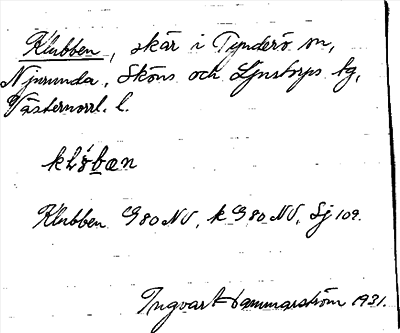 Klubben, skär i Tynderö sn,
Njurunda, Sköns och Ljustorps tg,
Västernorrl. l.
Klubben G80 NV, k G80 NV, Sj 109.
Ingvart Hammarström 1931.